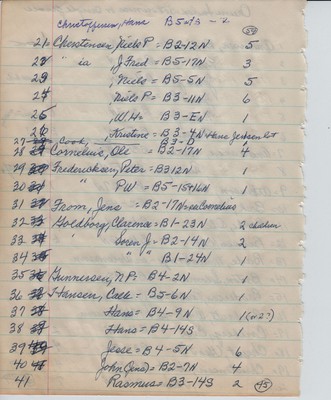 Christoffersen, Hans B5-4S - 2
21 Christensen, Niels P = B2-12N 5 (59)
22 " ia J Fred = B5-17N 3
23 , Niels = B5-5N 5
24 , Niels P = B3-11N 6
25 , W H = B3-EN 1
26 , Kristine = B3-4N Hans Jepsen lot
27 Cook, B3-D 1
28 Cornelius, Ole = B2-17N 4
29 Frederiksen, Peter = B3 12N 1
30 " PW = B5-15+16N 1
31 From, Jens = B2-17N see Cornelius
32 Goldborg, Clarence = B1-23N 2 children
33 " Soren J = B2-14N 2
34 " " " B1-24N 1
35 Gunnersen, N.P. = B4-2N 1
36 Hansen, = B5-6N 1
37 Hans = B4-9N 1 (or 2?)
38 Hans = B4-14S 1
39 Jesse = B4-5N 6
40 John (Jens) = B2-7N 4
41 Rasmus = B3-14S 2 (45)